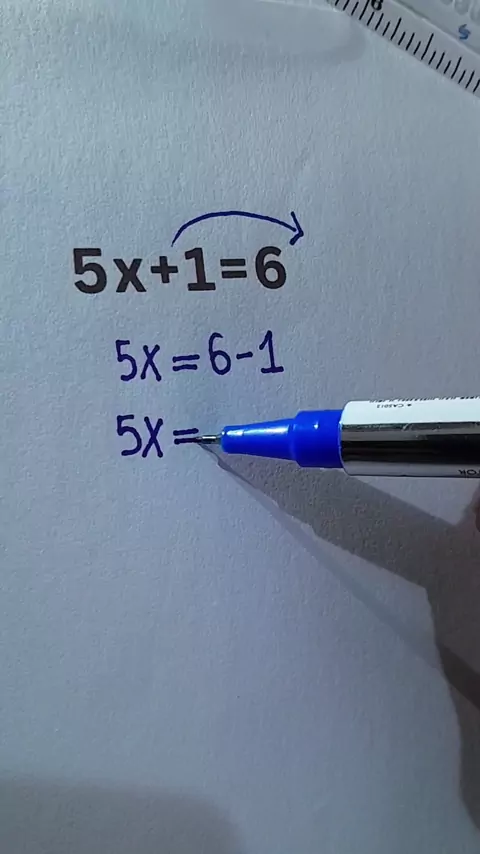 6
5x+1=6
5x=6-1
5x=